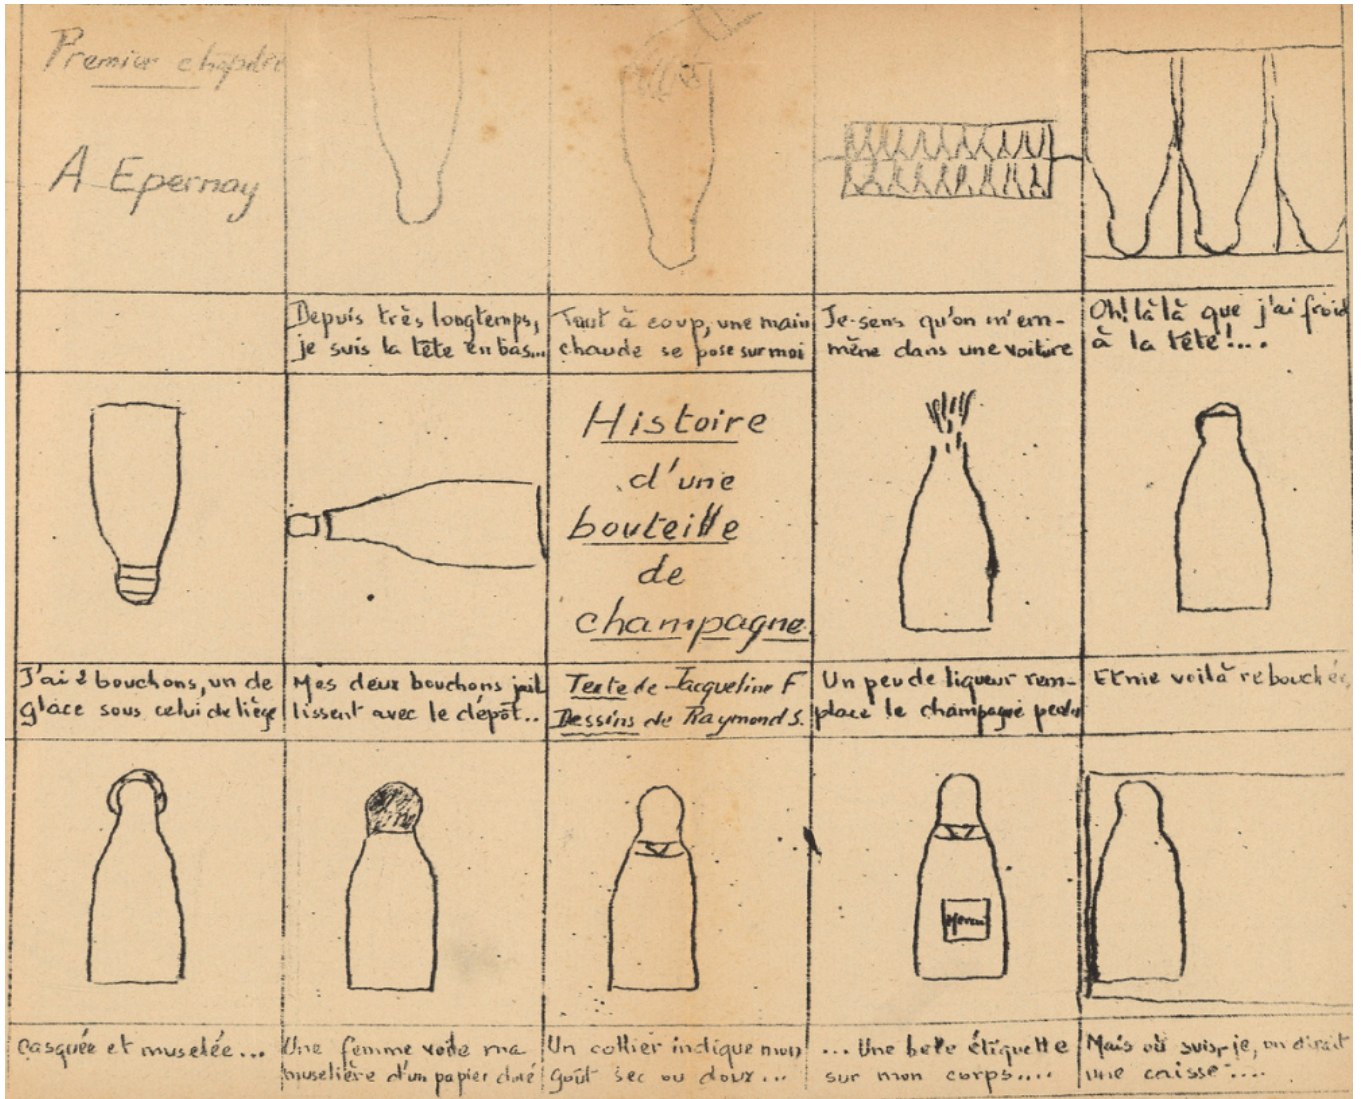 Premier chapitre
A Epernay
Depuis très longtemps,
je suis la tête en bas...
Tout à coup, une main
chaude se pose sur moi
Je sens qu'on m'em-
mène dans une voiture
Oh! là là que j'ai froid
à la tête!...
J'ai 2 bouchons, un de
glace sous celui de liège
Mes deux bouchons jail
lissent avec le dépôt..
Histoire
d'une
bouteille
de
champagne
Texte de Jacqueline F
Dessins de Raymond S.
Un peu de liqueur rem-
place le champagne perdu
Et me voilà rebouchée,
casquée et muselée...
Une femme voile ma
muselière d'un papier doré
Un collier indique mon
goût sec ou doux...
... Une belle étiquette
sur mon corps....
Mais où suis-je, on dirait
une caisse....